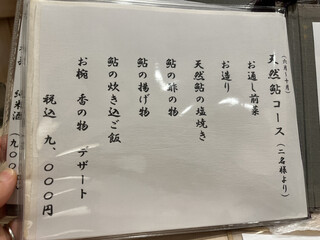 (六月～十月)
天然鮎コース(二名様より)
お通し前菜
お造り
天然鮎の塩焼き
鮎の酢の物
鮎の揚げ物
鮎の炊き込ご飯
お椀 香の物 デザート
税込 九、〇〇〇円
純米酒(九〇〇